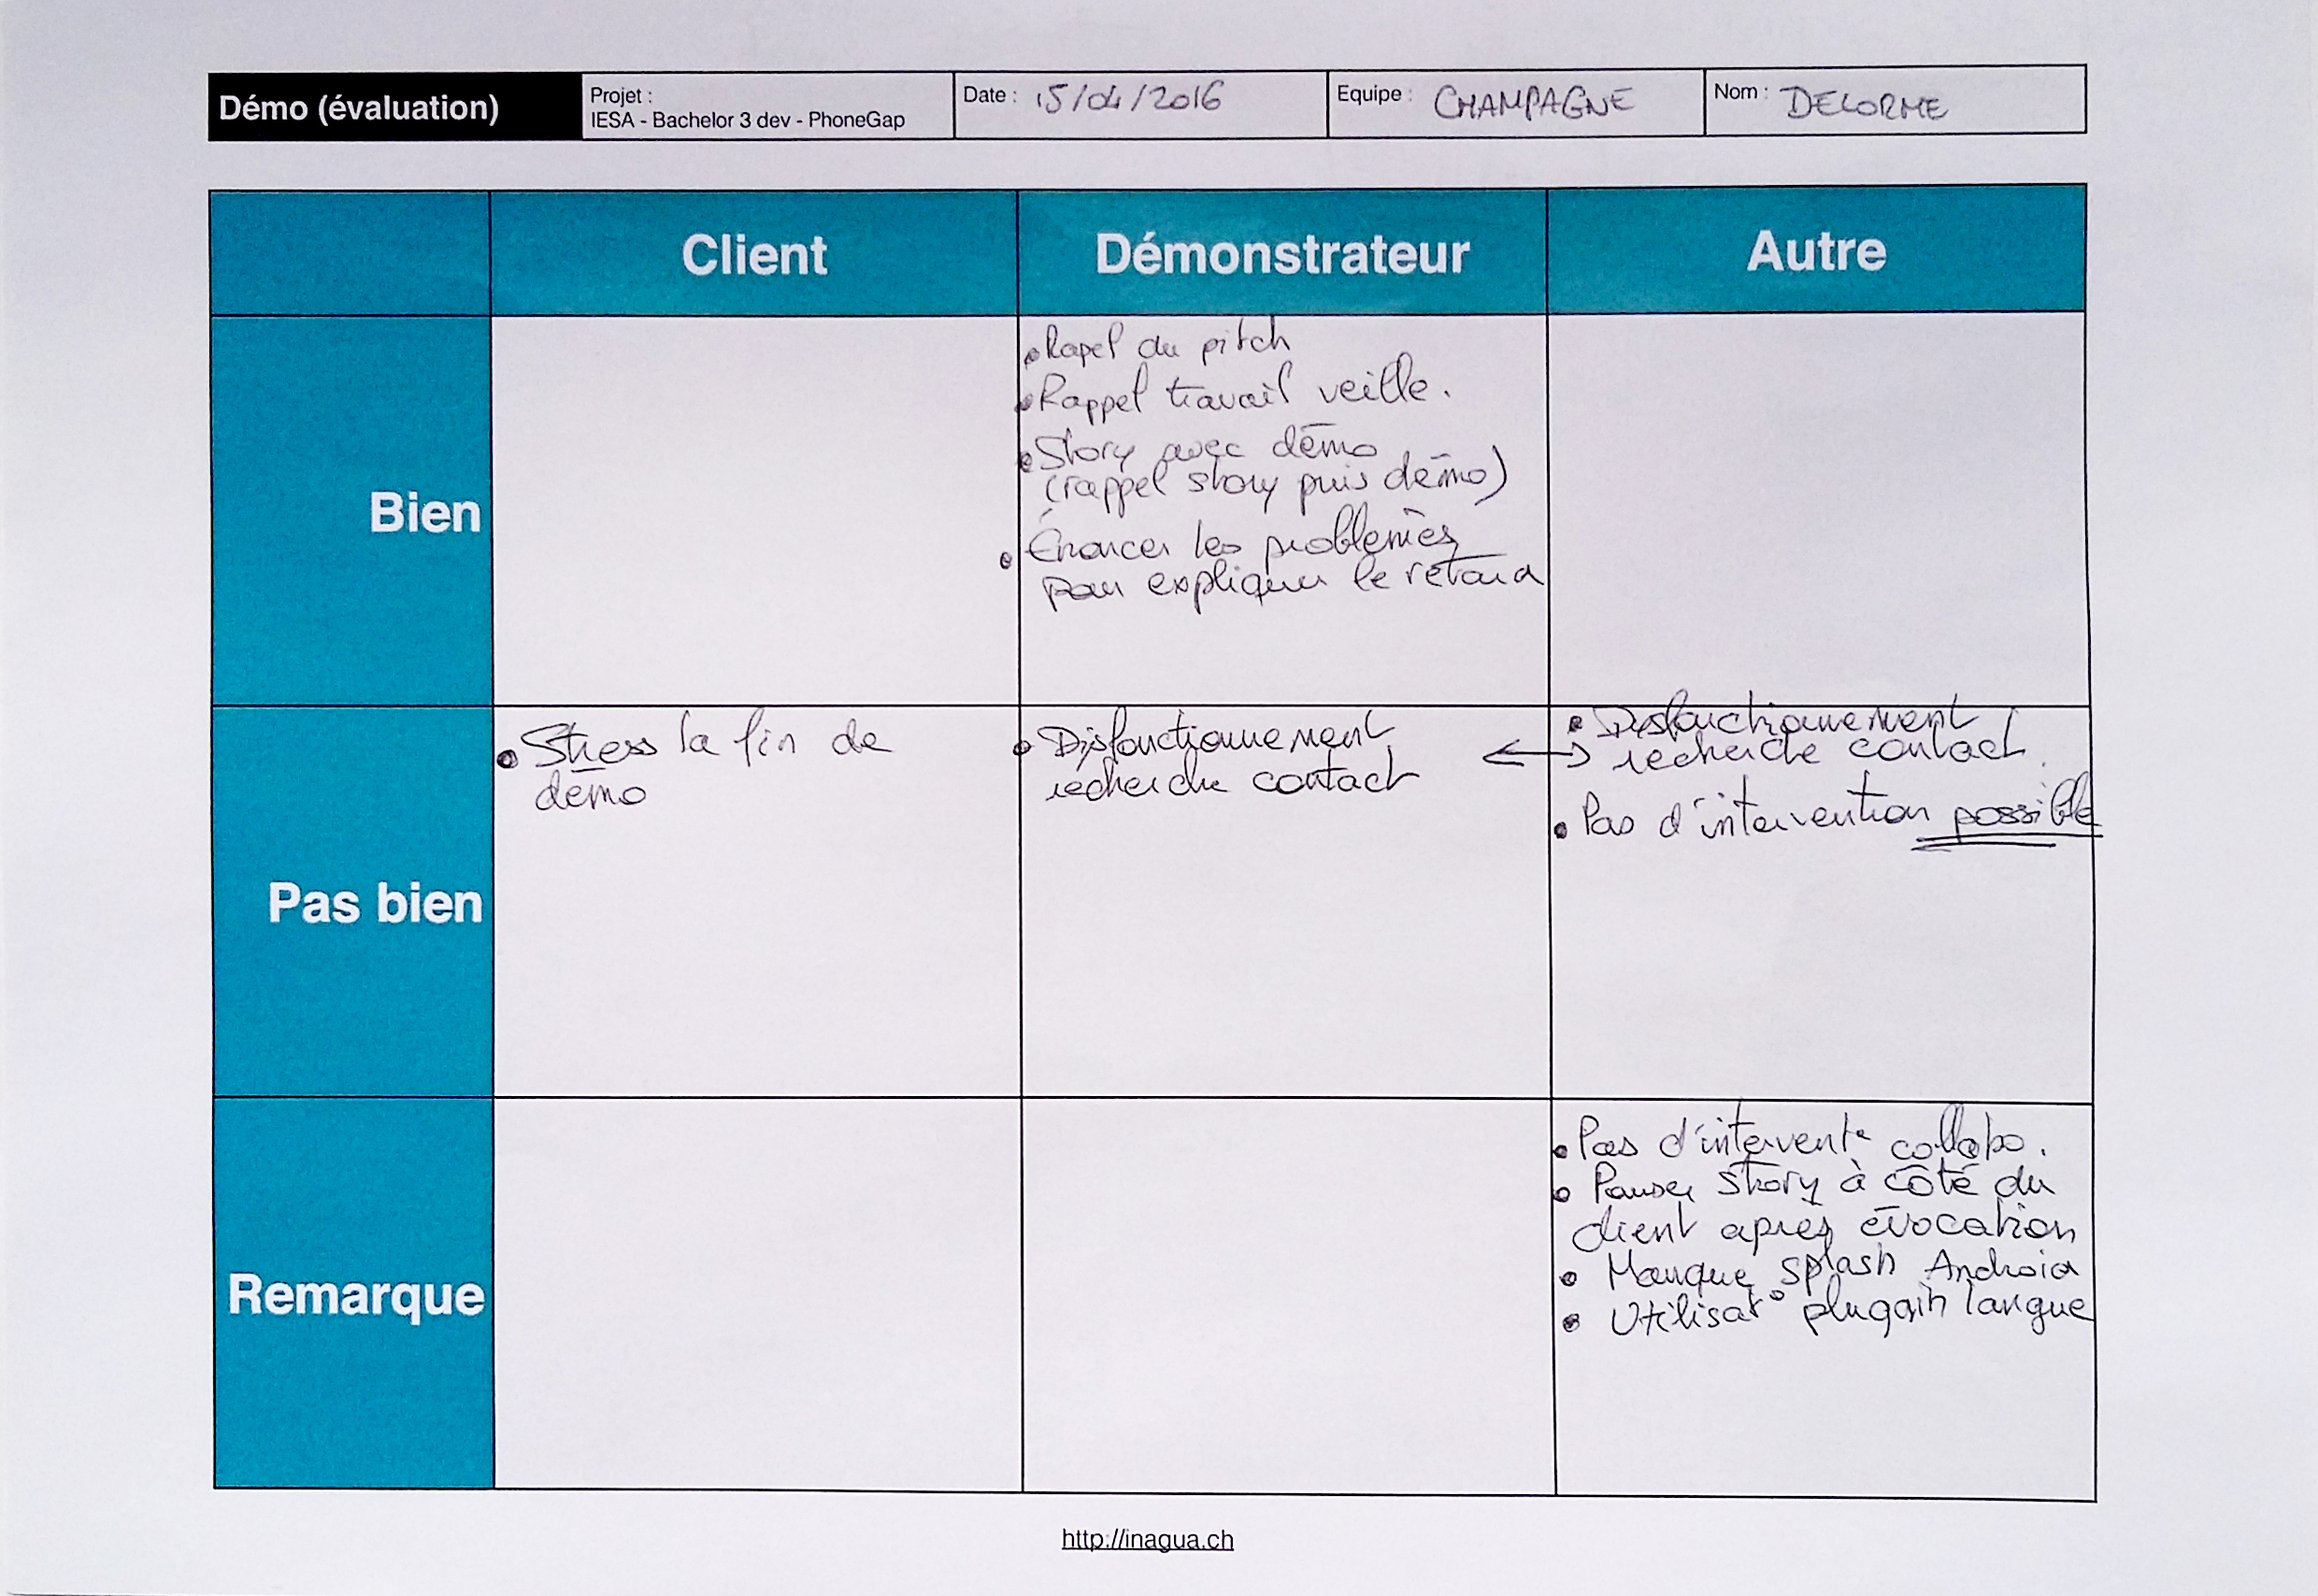 Démo (évaluation)
Projet :
IESA - Bachelor 3 dev - PhoneGap
Date : 15/04/2016
Equipe : CHAMPAGNE
Nom : DELORME
Client
Démonstrateur
Autre
Bien
• Rapel du pitch
• Rappel travail veille.
• Story avec démo
(rappel story puis démo)
• Énoncer les problèmes
pour expliquer le retard
Pas bien
• Stress la fin de
démo
• Disfonctionnement
recherche contact
↔
• Disfonctionnement
recherche contact.
• Pas d'intervention possible
Remarque
• Pas d'intervent° collabo.
• Story à côté du
client après évocation
• Manque splash Android
• Utilisat° plugain langue
http://inagua.ch